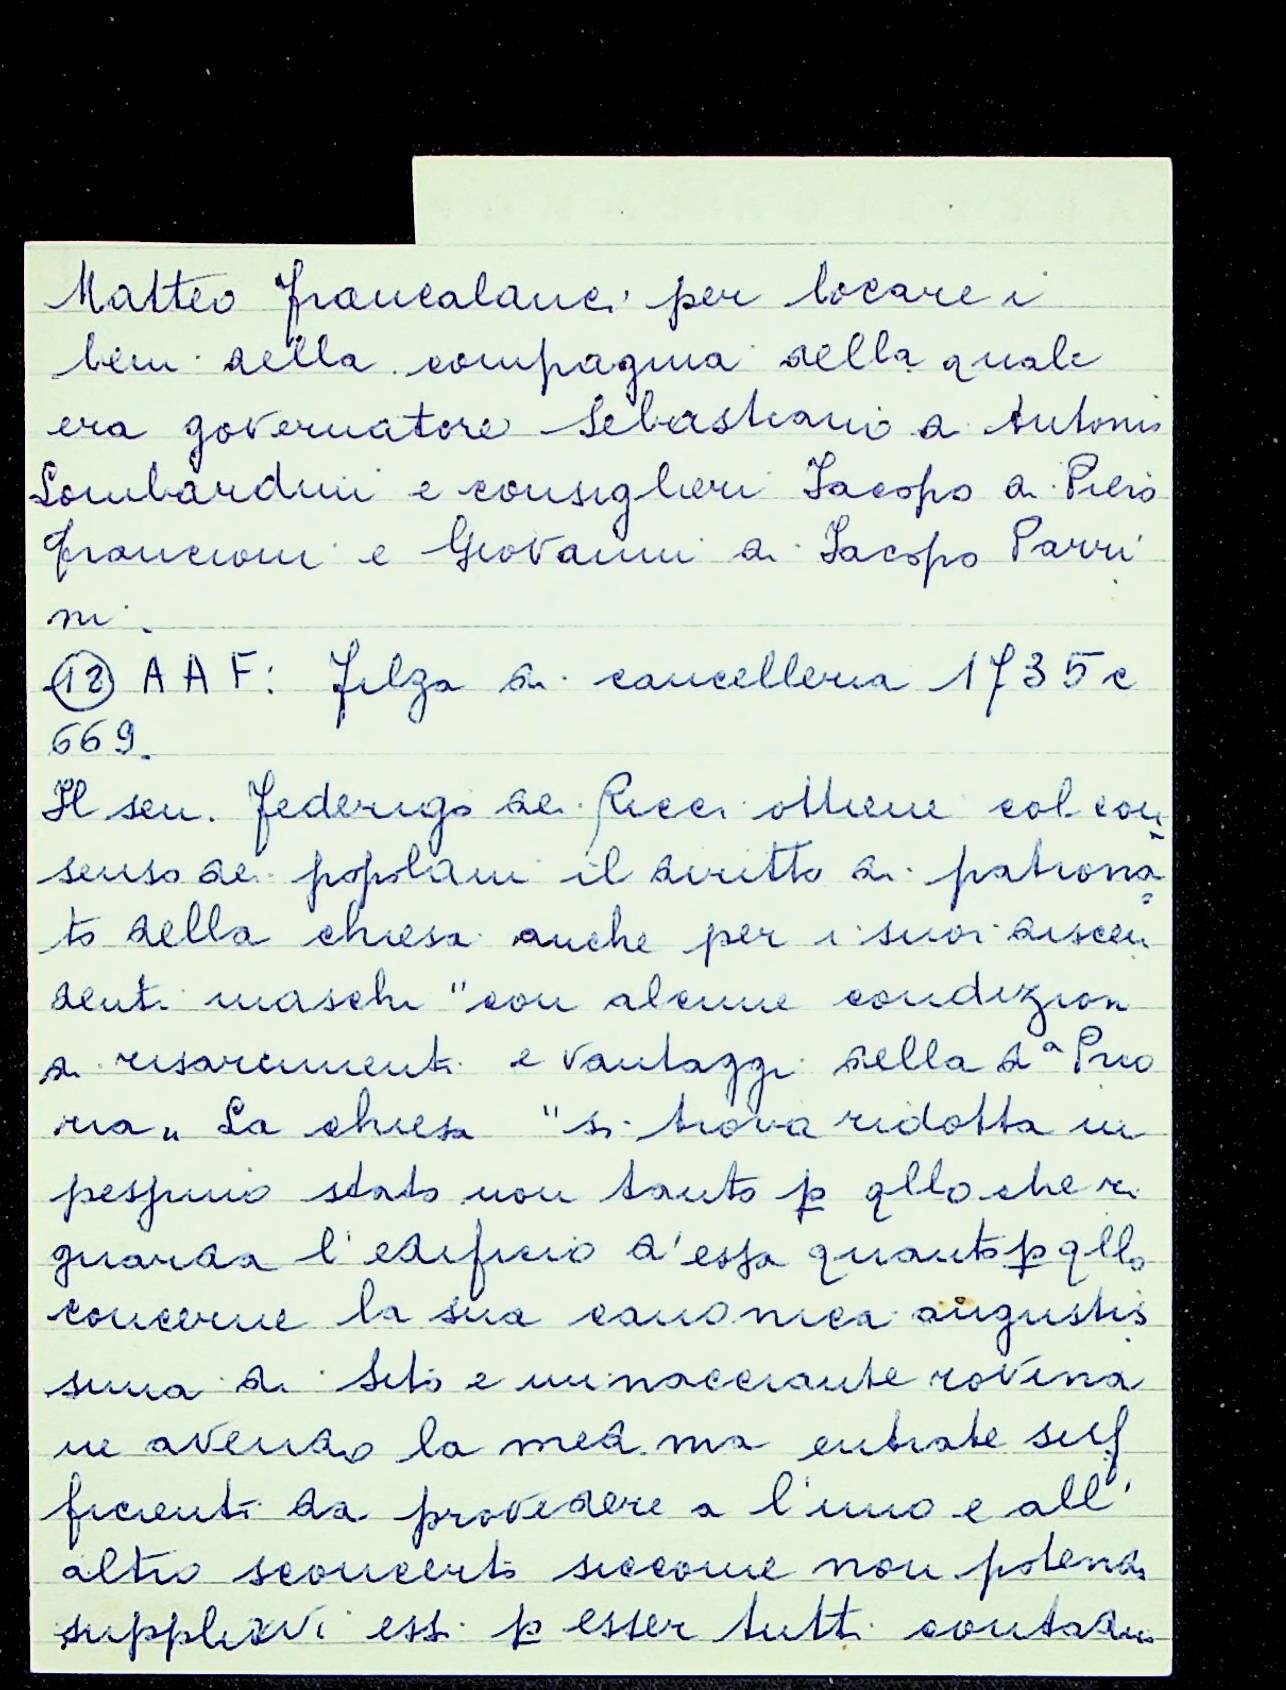 Matteo Francalanci per locare i
beni della compagnia della quale
era governatore Sebastiano di Antonio
Lombardini e consiglieri Iacopo di Piero
Francioni e Giovanni di Iacopo Parri
ni.
(12) A A F: Filza di cancelleria 1735 c
669.
Il sen. Federigo dei Ricci ottiene col con
senso dei popolani il diritto di patrona
to della chiesa anche per i suoi discen
denti maschi "con alcune condizioni
di risarcimenti e vantaggi della dª Prio
ria„ La chiesa "si trova ridotta in
pessimo stato non tanto p qllo che ri
guarda l'edificio d'essa quanto p qllo
concerne la sua canonica angustis
sima di sito e minacciante rovina
ne avendo la med.ma entrate suf
ficienti da provedere a l'uno e all'
altro sconcerto siccome non potendo
supplirvi essi p esser tutti contadini